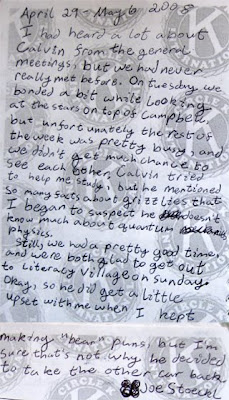 April 29 - May 6 2008
I had heard a lot about
Calvin from the general
meetings, but we had never
really met before. On Tuesday, we
bonded a bit while looking
at the stars on top of Campbell,
but unfortunately the rest of
the week was pretty busy, and
we didn't get much chance to
see each other. Calvin tried
to help me study, but he mentioned
so many facts about grizzlies that
I began to suspect he doesn't
know much about quantum
physics.
Still, we had a pretty good time,
and were both glad to get out
to Literacy Village on Sunday.
Okay, so he did get a little
upset with me when I kept
making "bear" puns, but I'm
sure that's not why he decided
to take the other car back.
Joe Stoeckl